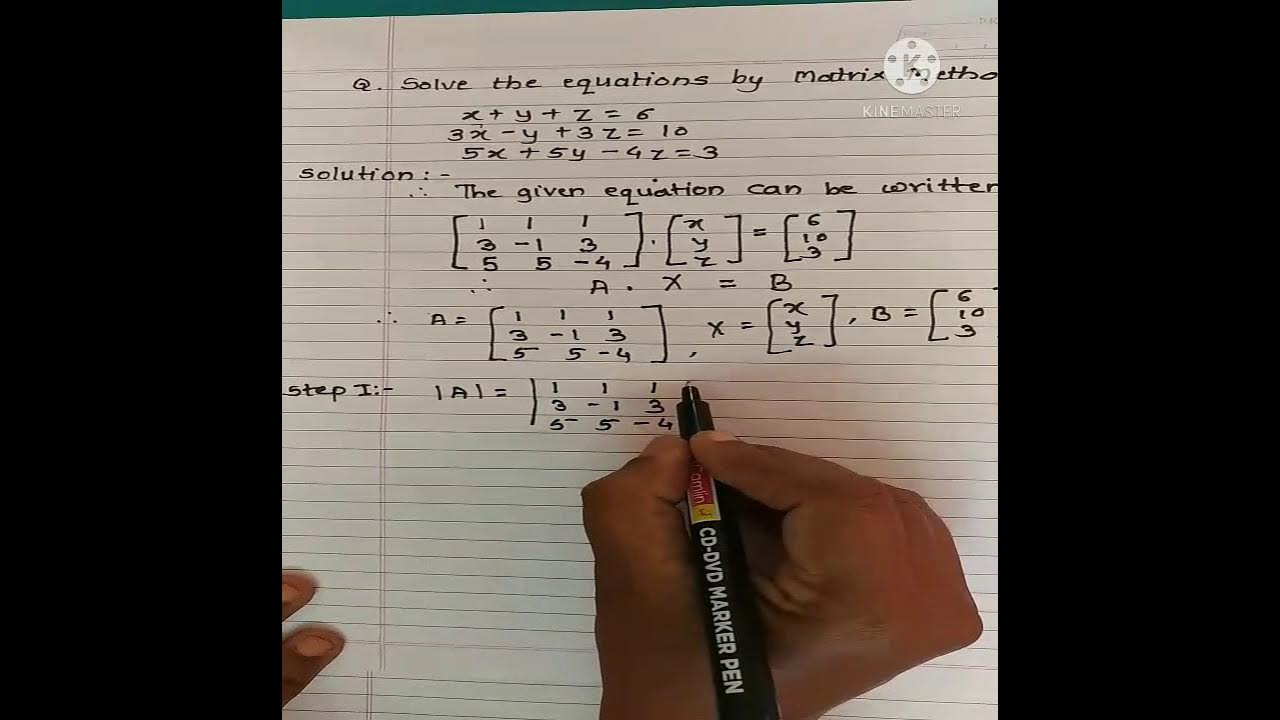 Q. Solve the equations by Matrix Metho
x + y + z = 6
3x - y + 3z = 10
5x + 5y - 4z = 3
Solution :-
∴ The given equation can be written
[1 1 1] [x] [6]
[3 -1 3] . [y] = [10]
[5 5 -4] [z] [3]
∴ A . X = B
∴ A = [1 1 1; 3 -1 3; 5 5 -4], X = [x; y; z], B = [6; 10; 3
Step I:- |A| = | 1 1 1
3 -1 3
5 5 -4
KINEMASTER
Camlin
CD-DVD MARKER PEN